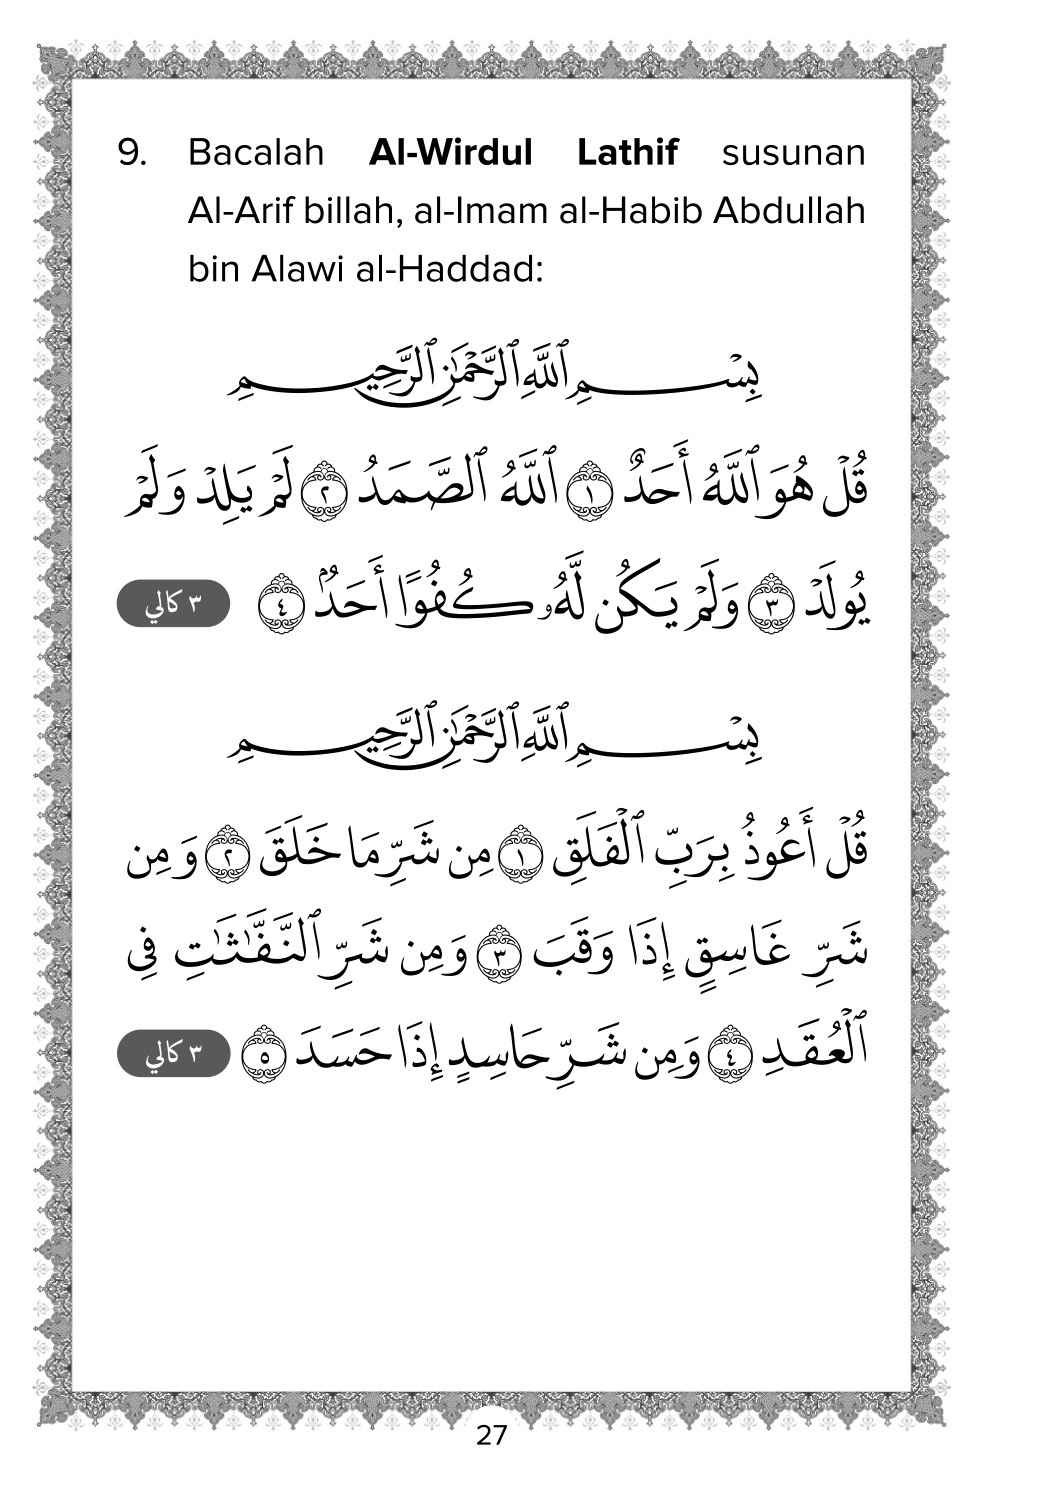 9. Bacalah Al-Wirdul Lathif susunan
Al-Arif billah, al-Imam al-Habib Abdullah
bin Alawi al-Haddad:
بِسْمِ ٱللَّهِ ٱلرَّحْمَٰنِ ٱلرَّحِيمِ
قُلْ هُوَ ٱللَّهُ أَحَدٌ ١ ٱللَّهُ ٱلصَّمَدُ ٢ لَمْ يَلِدْ وَلَمْ
يُولَدْ ٣ وَلَمْ يَكُن لَّهُۥ كُفُوًا أَحَدٌۢ ٤ ٣ كالي
بِسْمِ ٱللَّهِ ٱلرَّحْمَٰنِ ٱلرَّحِيمِ
قُلْ أَعُوذُ بِرَبِّ ٱلْفَلَقِ ١ مِن شَرِّ مَا خَلَقَ ٢ وَمِن
شَرِّ غَاسِقٍ إِذَا وَقَبَ ٣ وَمِن شَرِّ ٱلنَّفَّٰثَٰتِ فِى
ٱلْعُقَدِ ٤ وَمِن شَرِّ حَاسِدٍ إِذَا حَسَدَ ٥ ٣ كالي
27